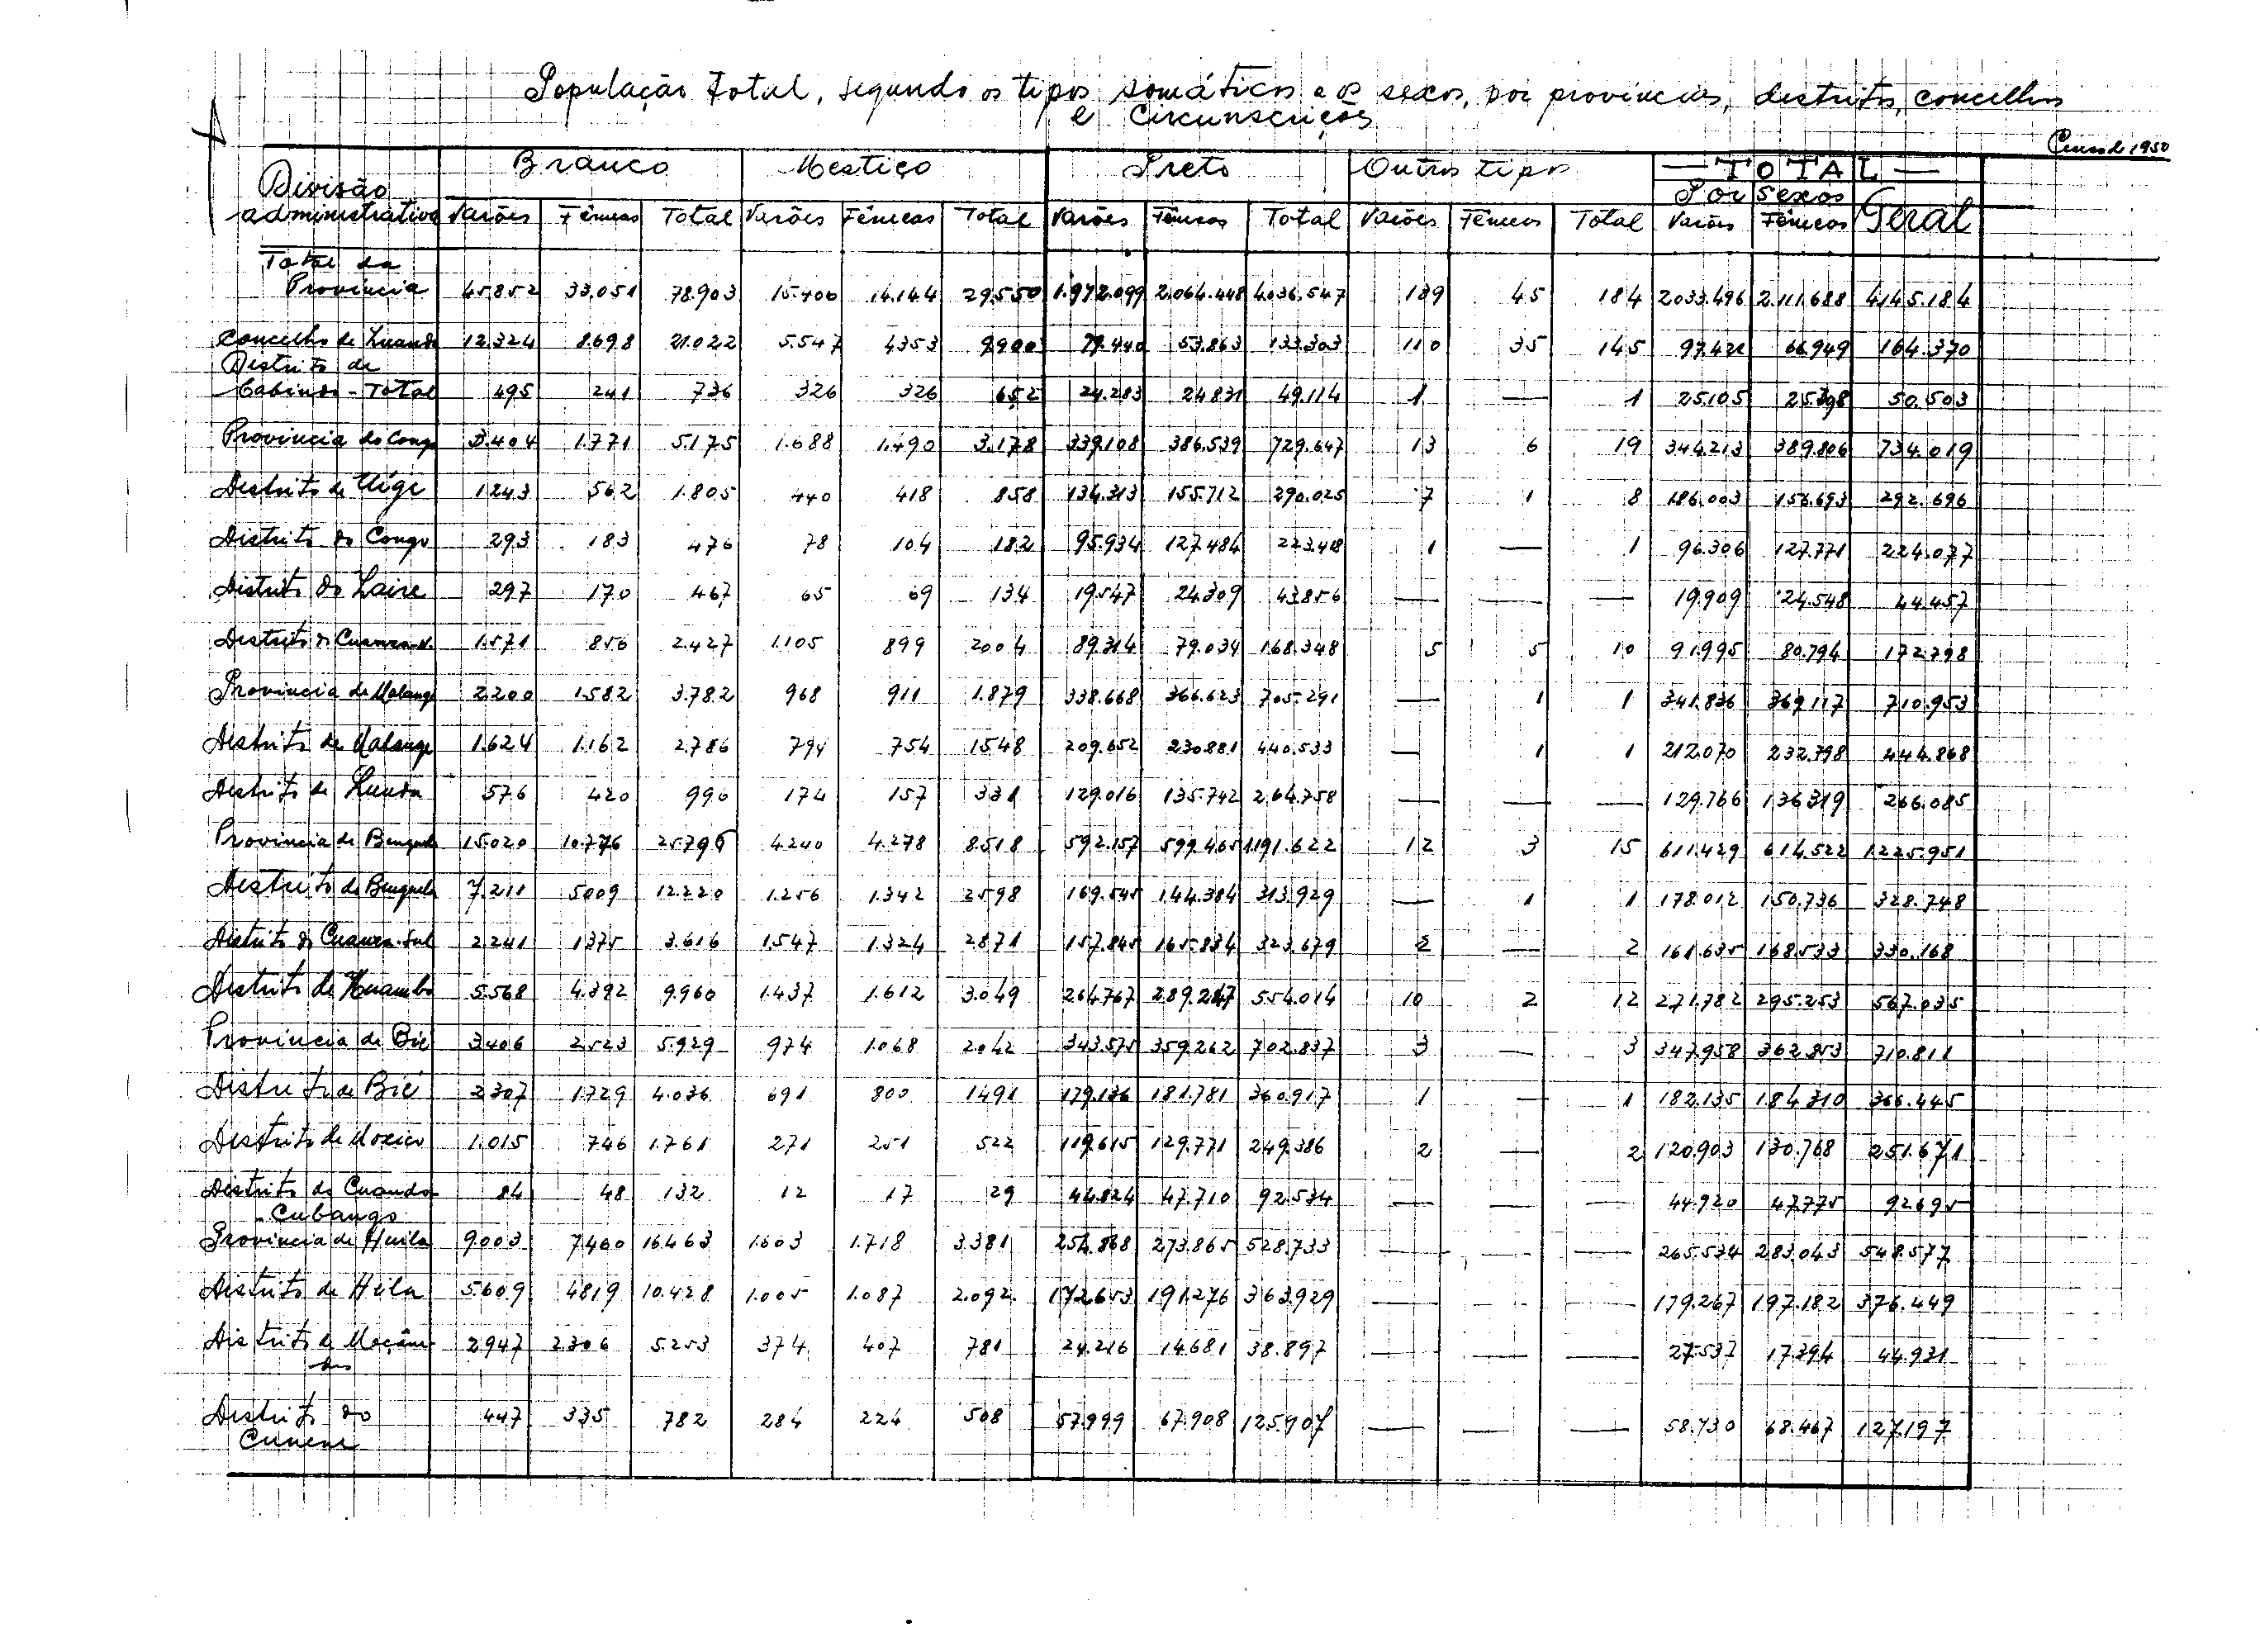 População Total, segundo os tipos somáticos e os sexos, por províncias, distritos, concelhos
e Circunscrições
Censo de 1950
Divisão administrativa Branco Mestiço Preto Outros tipos TOTAL
Por sexos Geral
Varões Fêmeas Total Varões Fêmeas Total Varões Fêmeas Total Varões Fêmeas Total Varões Fêmeas
Total da
Província 45.852 33.051 78.903 15.406 14.144 29.550 1.972.099 2.064.448 4.036.547 139 45 184 2.033.496 2.111.688 4.145.184
Concelho de Luanda 12.324 8.698 21.022 5.547 4353 9900 79.440 53.863 133.303 110 35 145 97.421 66.949 164.370
Distrito de
Cabinda - Total 495 241 736 326 326 652 24.283 24.831 49.114 1 — 1 25.105 25.398 50.503
Província do Congo 3.404 1.771 5.175 1.688 1.490 3.178 339.108 386.539 729.647 13 6 19 344.213 389.806 734.019
Distrito de Uíge 1243 562 1.805 440 418 858 134.313 155.712 290.025 7 1 8 136.003 156.693 292.696
Distrito do Congo 293 183 476 78 104 182 95.934 127.484 223.418 1 — 1 96.306 127.771 224.077
Distrito do Zaire 297 170 467 65 69 134 19.547 24.309 43.856 — — — 19.909 24.548 44.457
Distrito do Cuanza-N. 1.571 856 2.427 1.105 899 2004 89.314 79.034 168.348 5 5 10 91.995 80.794 172.798
Província de Malange 2.200 1.582 3.782 968 911 1.879 338.668 366.623 705.291 — 1 1 341.836 369.117 710.953
Distrito de Malange 1.624 1.162 2.786 794 754 1548 209.652 230.881 440.533 — 1 1 212.070 232.798 444.868
Distrito de Lunda 576 420 996 174 157 331 129.016 135.742 264.758 — — — 129.766 136.319 266.085
Província de Benguela 15.020 10.776 25.796 4.240 4.278 8.518 592.157 599.465 1191.622 12 3 15 611.429 614.522 1.225.951
Distrito de Benguela 7.211 5009 12.220 1.256 1.342 2598 169.545 144.384 313.929 — 1 1 178.012 150.736 328.748
Distrito do Cuanza-Sul 2.241 1375 3.616 1.547 1.324 2871 157.845 165.834 323.679 2 — 2 161.635 168.533 330.168
Distrito de Huambo 5.568 4.392 9.960 1.437 1.612 3.049 264.767 289.247 554.014 10 2 12 271.782 295.253 567.035
Província de Bié 3.406 2.523 5.929 974 1.068 2042 343.575 359.262 702.837 3 — 3 347.958 362.853 710.811
Distrito de Bié 2307 1.729 4.036 691 800 1491 179.136 181.781 360.917 1 — 1 182.135 184.310 366.445
Distrito de Moxico 1.015 746 1.761 271 251 522 119.615 129.771 249.386 2 — 2 120.903 130.768 251.671
Distrito do Cuando 84 48 132 12 17 29 44.824 47.710 92.534 — — — 44.920 47.775 92695
- Cubango
Província de Huila 9003 7460 16.463 1.663 1.718 3.381 254.868 273.865 528.733 — — — 265.534 283.043 548.577
Distrito de Hila 5.609 4819 10.428 1.005 1.087 2.092 172.653 191.276 363.929 — — — 179.267 197.182 376.449
Distrito de Moçâme- 2.947 2.306 5.253 374 407 781 24.216 14.681 38.897 — — — 27.537 17.394 44.931
des
Distrito do 447 335 782 284 224 508 57.999 67.908 125.907 — — — 58.730 68.467 127.197
Cunene